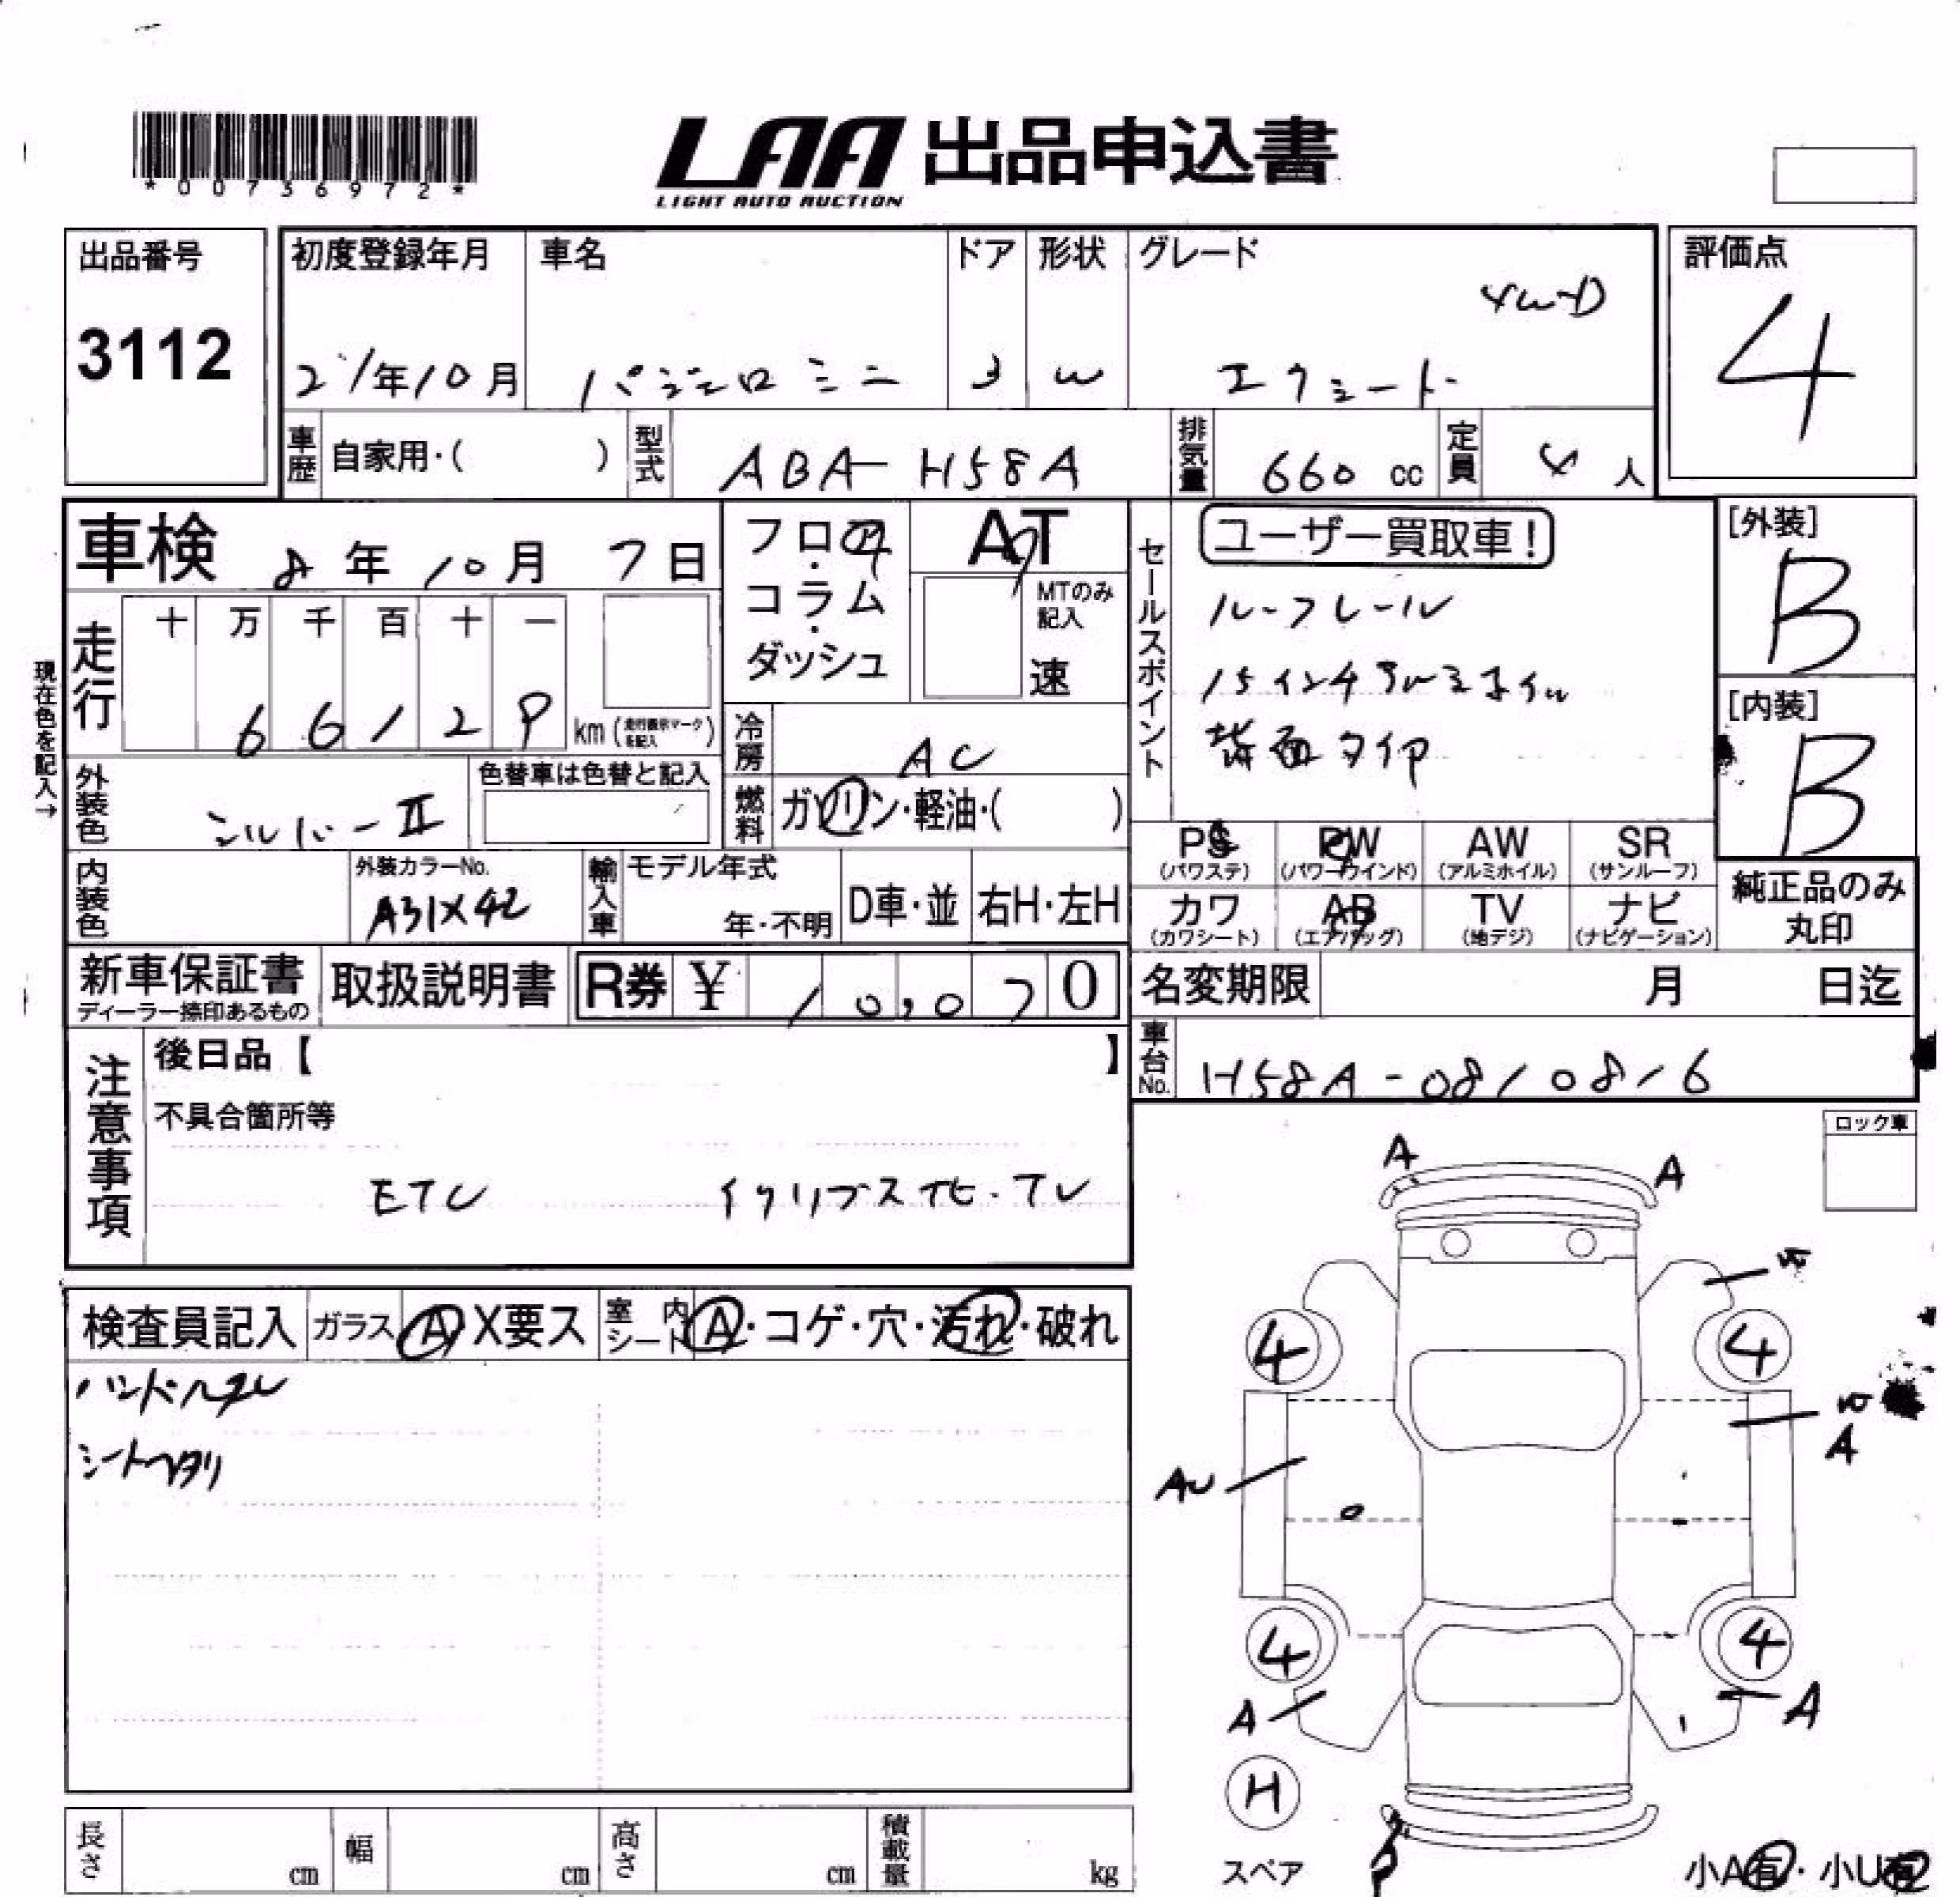 *00736972*
LAA 出品申込書
LIGHT AUTO AUCTION
出品番号
3112
初度登録年月
21年10月
車名
パジェロミニ
ドア
3
形状
W
グレード
4WD
エクシード
評価点
4
車歴 自家用・( )
型式 ABA-H58A
排気量 660 cc
定員 4 人
車検 8年10月7日
フロア・コラム・ダッシュ
AT
MTのみ記入
速
セールスポイント
ユーザー買取車!
ルーフレール
15インチアルミホイル
背面タイヤ
[外装]
B
[内装]
B
現在色を記入→
走行
十 万 千 百 十 一
66129
km (走行表示マークを記入)
冷房 AC
燃料 ガソリン・軽油・( )
外装色 シルバーII
色替車は色替と記入
内装色
外装カラーNo.
A31X42
輸入車
モデル年式
年・不明
D車・並
右H・左H
PS (パワステ)
PW (パワーウインド)
AW (アルミホイル)
SR (サンルーフ)
カワ (カワシート)
AB (エアバッグ)
TV (地デジ)
ナビ (ナビゲーション)
純正品のみ丸印
新車保証書
ディーラー捺印あるもの
取扱説明書
R券 ¥ 10,070
名変期限 月 日迄
車台No. H58A-0810816
注意事項
後日品【 】
不具合箇所等
ETC イクリプスナビ・TV
ロック車
検査員記入
ガラス A X要ス
室内シート A・コゲ・穴・汚れ・破れ
ハンドルスレ
シートヘタリ
A
A
4
4
A
AU
4
4
A
A
H
スペア
小A有・小U有
長さ cm
幅 cm
高さ cm
積載量 kg